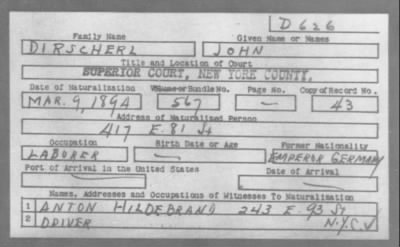 D 626
Family Name Given Name or Names
DIRSCHERL JOHN
Title and Location of Court
SUPERIOR COURT, NEW YORK COUNTY.
Date of Naturalization Volume or Bundle No. Page No. Copy of Record No.
MAR. 9, 1894 567 — 43
Address of Naturalized Person
417 E. 81 St
Occupation Birth Date or Age Former Nationality
LABORER — EMPEROR GERMANY
Port of Arrival in the United States Date of Arrival
— —
Names, Addresses and Occupations of Witnesses To Naturalization
1 ANTON HILDEBRAND 243 E. 93 St
2 DRIVER N.Y.C.